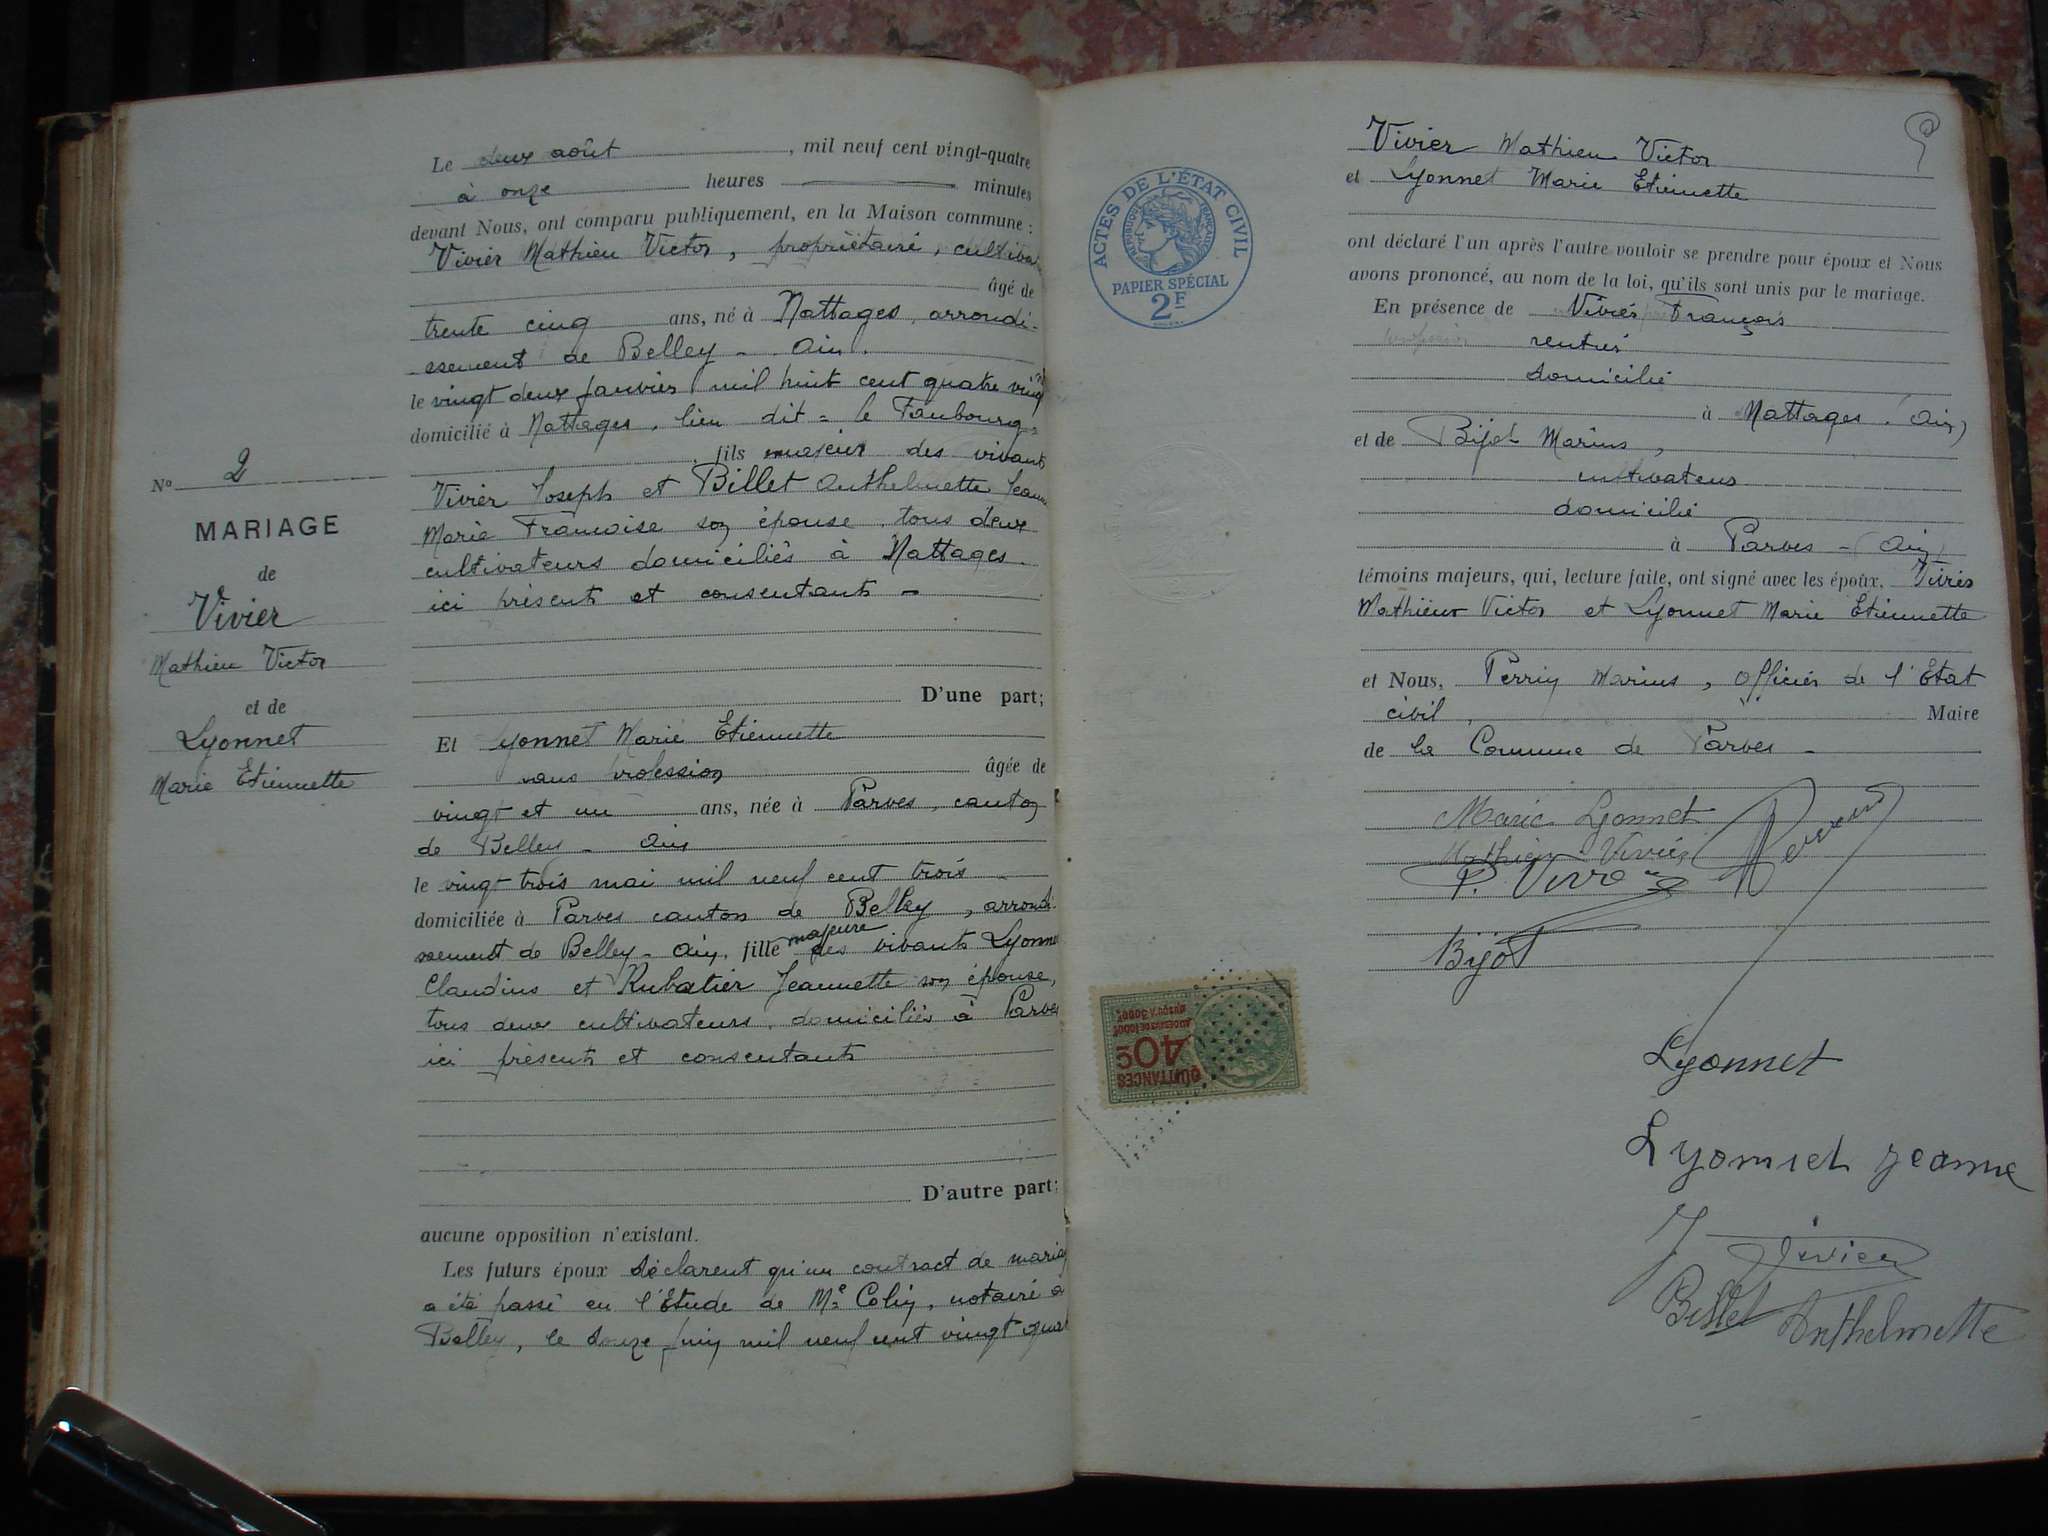 Nº 2
MARIAGE
de
Vivier
Mathieu Victor
et de
Lyonnet
Marie Etiennette
Le deux août, mil neuf cent vingt-quatre
à onze heures minutes
devant Nous, ont comparu publiquement, en la Maison commune :
Vivier Mathieu Victor, propriétaire, cultivat
âgé de
trente cinq ans, né à Nattages, arrondi-
ssement de Belley - Ain.
le vingt deux janvier mil huit cent quatre vingt
domicilié à Nattages, lieu dit = le Faubourg =
, fils majeur des vivants
Vivier Joseph et Billet Anthelmette Jeanne
Marie Francoise son épouse, tous deux
cultivateurs domiciliés à Nattages.
ici présents et consentants -
D'une part;
Et Lyonnet Marie Etiennette
sans profession âgée de
vingt et un ans, née à Parves, canton
de Belley - Ain
le vingt trois mai mil neuf cent trois
domiciliée à Parves canton de Belley, arrondi-
ssement de Belley - Ain, fille majeure des vivants Lyonnet
Claudius et Rubatier Jeannette son épouse,
tous deux cultivateurs, domiciliés à Parves
ici présents et consentants
D'autre part;
aucune opposition n'existant.
Les futurs époux déclarent qu'un contract de mariag
a été passé en l'Etude de Me Colin, notaire à
Belley, le douze juin mil neuf cent vingt quat
ACTES DE L'ÉTAT CIVIL
RÉPUBLIQUE FRANÇAISE
PAPIER SPÉCIAL
2F
Vivier Mathieu Victor
et Lyonnet Marie Etiennette
ont déclaré l'un après l'autre vouloir se prendre pour époux et Nous
avons prononcé, au nom de la loi, qu'ils sont unis par le mariage.
En présence de Vivier François
rentier
domicilié
à Nattages (Ain)
et de Bijot Marius,
cultivateur
domicilié
à Parves - (Ain)
témoins majeurs, qui, lecture faite, ont signé avec les époux, Vivier
Mathieu Victor et Lyonnet Marie Etiennette
et Nous, Perrin Marius, officier de l'Etat
civil, Maire
de la Commune de Parves -
Marie Lyonnet
Mathieu Vivier
Bijot
QUITTANCES
40c
AU DESSUS DE 1000F
JUSQU'A 3000F
Lyonnet
Lyonnet Jeanne
J Vivier
Billet Anthelmette